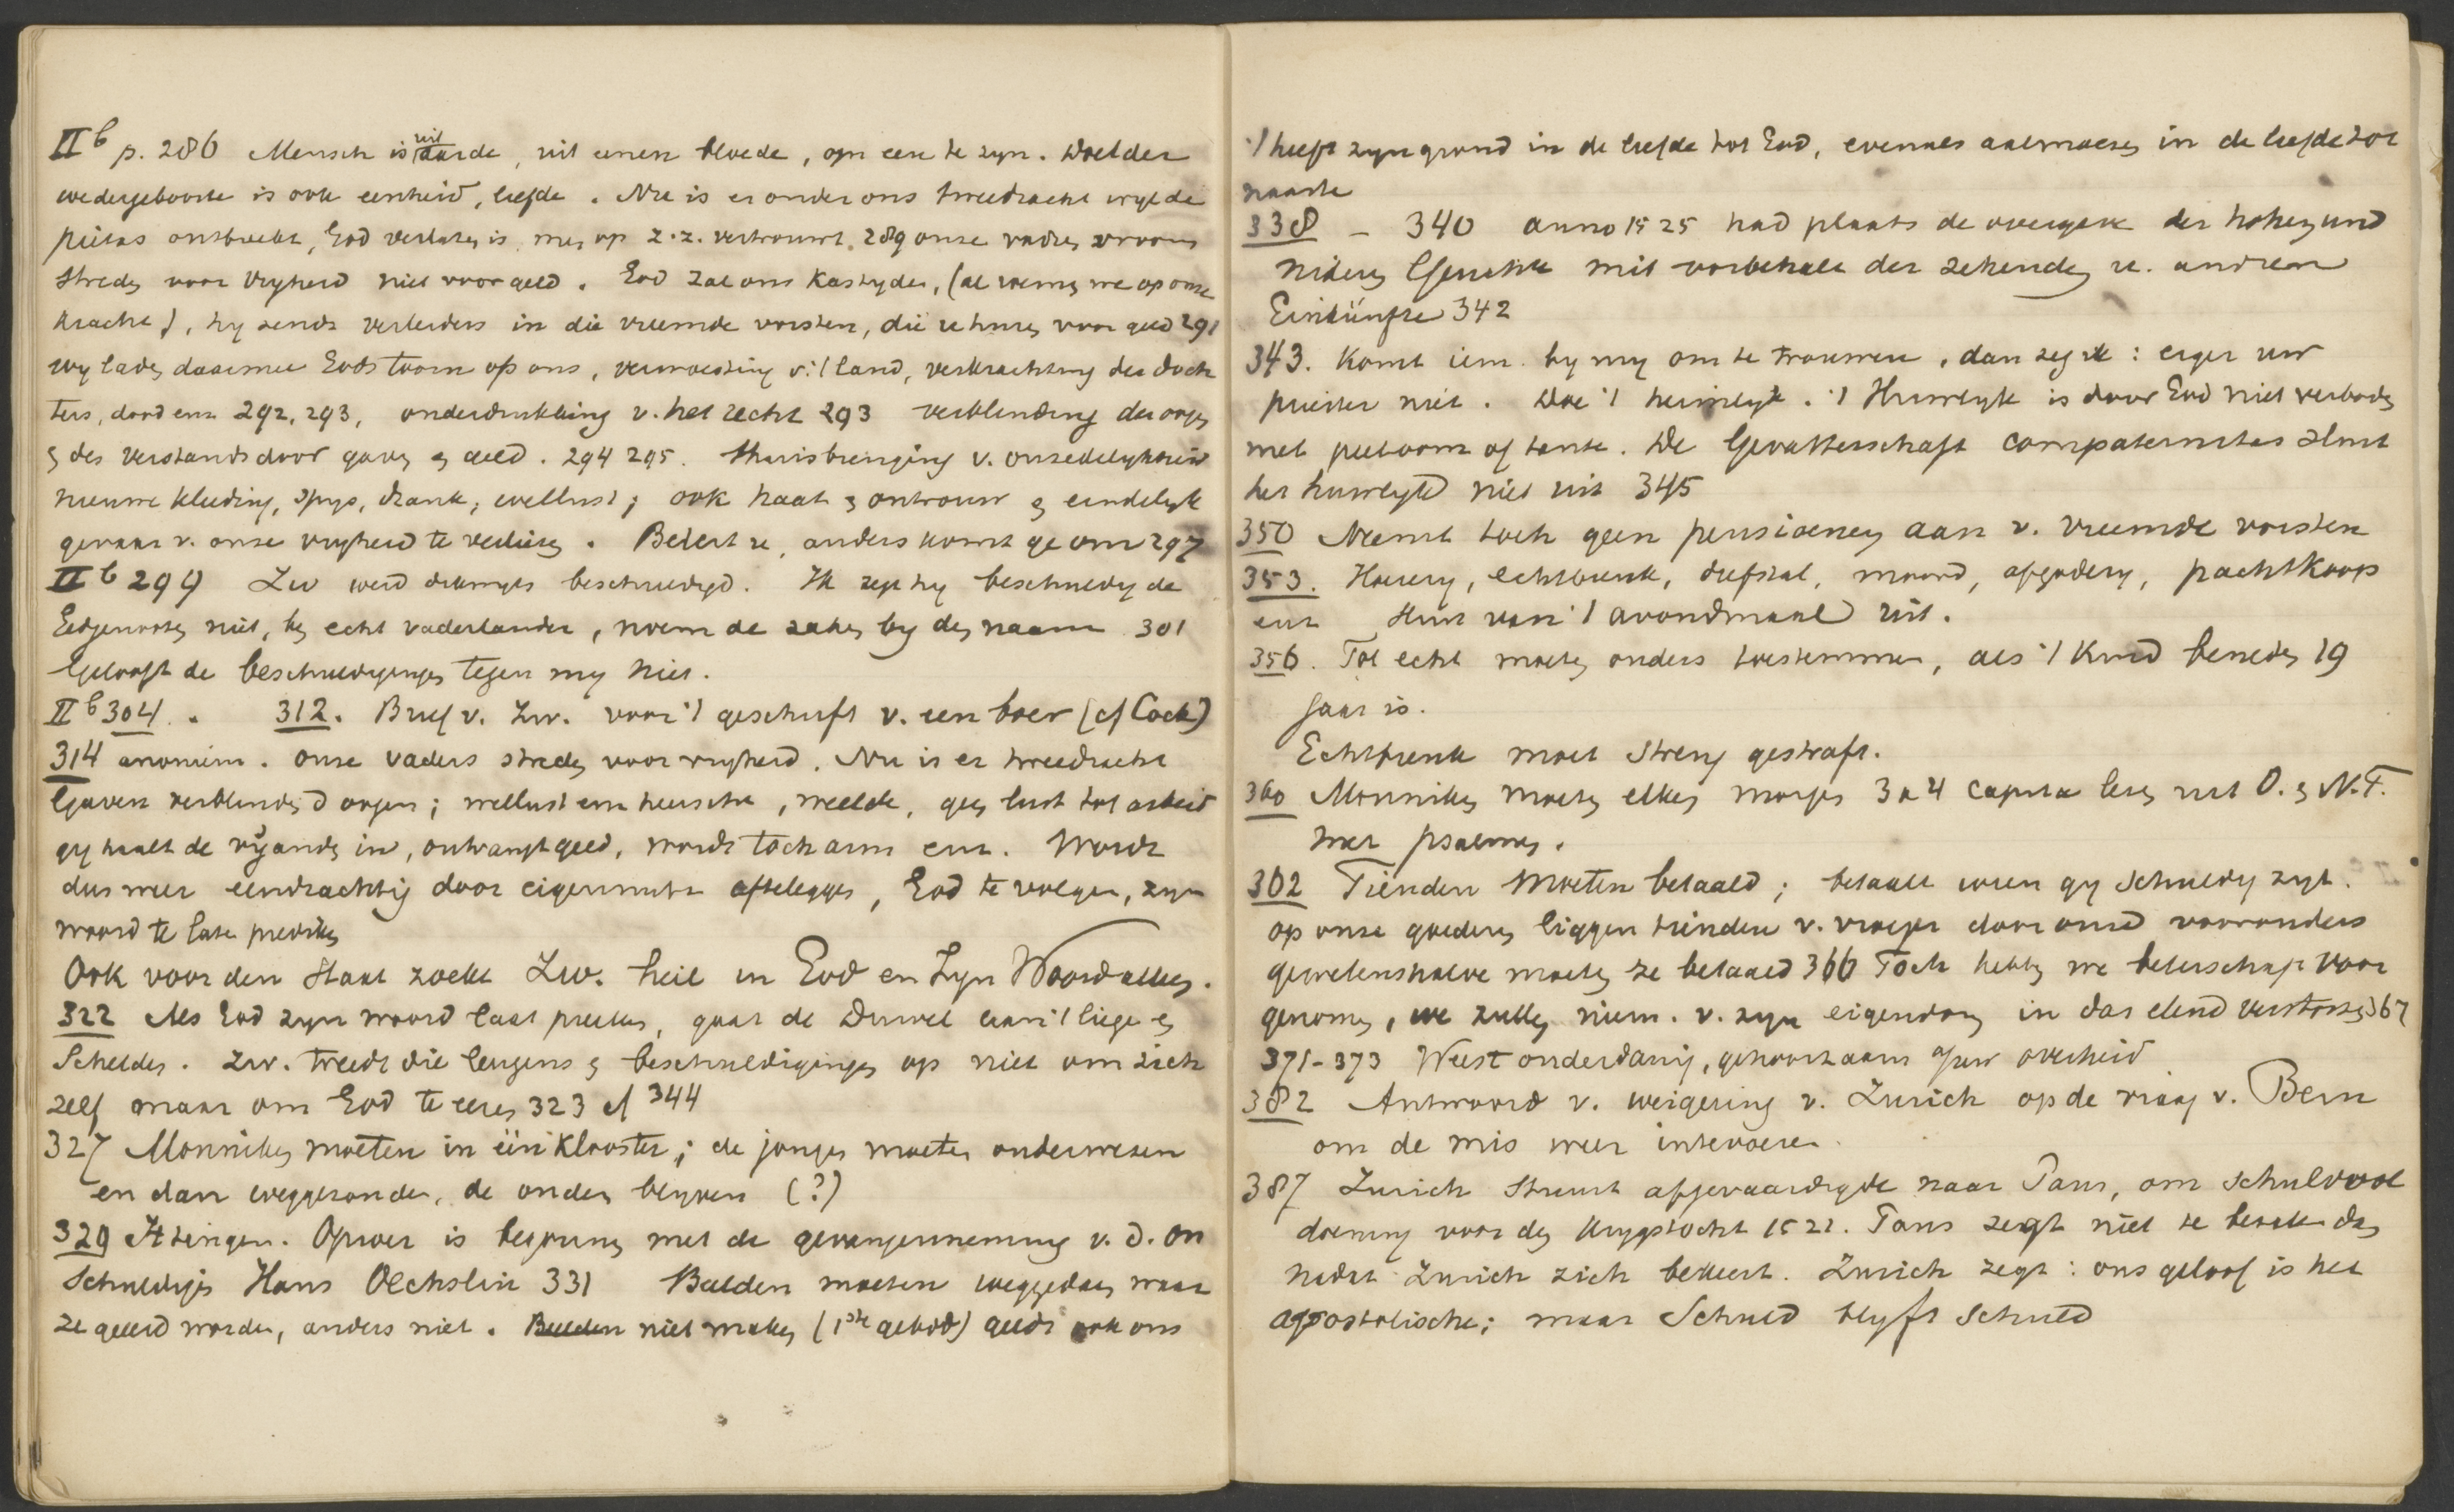 II b p. 286 Mensch is uit aarde, uit eenen bloede, om een te zyn. Doel der
wedergeboorte is ook eenheid, liefde. Nu is er onder ons tweedracht wyl de
pietas ontbreekt, God verlaten is, men op z.z. vertrouwt. 289 onze vaders vrooms
streden voor vryheid niet voor geld. God zal ons kastyden, (al roemen we op onze
kracht), hy zendt verleiders in die vreemde vorsten, die u huren voor geld 291
wy laden daarmee Gods toorn op ons, verwoesting v. 't land, verkrachting der doch
ters, dood enz 292, 293, onderdrukking v. het recht 293 verblinding der oogen
en des verstands door gaven en geld. 294 295. Thuisbrenging v. onzedelykheid
nieuwe kleeding, spys, drank, wellust; ook haat en ontrouw en eindelyk
gevaar v. onze vryheid te verliezen. Betert u, anders komt ge om 297
II b 299 Zw werd dikwyls beschuldigd. Ik zegt hy beschuldig de
Eedgenooten niet, ben echt vaderlander, noem de zaken by den naam 301
Gelooft de beschuldigingen tegen my niet.
II b 304. 312. Brief v. Zw. voor 't geschrift v. een boer (cf Cock)
314 anoniem. Onze vaders streden voor vryheid. Nu is er tweedracht
Gaven verblinden d oogen; wellust en heerscht, weelde, geen lust tot arbeid
gy haalt de vyanden in, ontvangt geld, wordt toch arm enz. Wordt
dus weer eendrachtig door eigennutz afteleggen, God te volgen, zyn
woord te laten prediken
Ook voor den staat zoekt Zw. heil in God en Zyn Woord alleen.
322 Als God zyn woord laat preeken, gaat de Duivel aan 't liegen en
Schelden. Zw. treedt die leugens en beschuldigingen op niet om zich
zelf maar om God te eeren 323 cf 344
327 Monniken moeten in één klooster; de jonge moeten onderwezen
en dan weggezonden, de ouden blyven (?)
329 Ittingen. Oproer is begonnen met de gevangenneming v. d. on
schuldigen Hans Oechslin 331 Beelden moeten weggedaan waar
ze geeerd worden, anders niet. Beelden niet maken (1ste gebod) geldt ook ons
't heeft zyn grond in de liefde tot God, evenals aalmoezen in de liefde tot
naaste
338 – 340 anno 1525 had plaats de overgave der hohen und
nideren Gerichte mit vorbehalt der zehenden u. andren
Einkünfte 342
343. Komt iem. by my om te trouwen, dan zeg ik: erger uw
priester niet. Doe 't heimelyk. 't Huwelyk is door God niet verboden
met peetoom of tante. De Gevatterschaft compaternitas sluit
het huwelyk niet uit 345
350 Neemt toch geen pensioenen aan v. vreemde vorsten
353. Hoerery, echtbreuk, diefstal, moord, afgodery, pachtkoop
enz sluit van 't avondmaal uit.
356. Tot echt moeten ouders toestemmen, als 't kind beneden 19
jaar is.
Echtbreuk moet streng gestraft.
360 Monniken moeten elken morgen 3 a 4 capita lezen uit O. en N.T.
met psalmen.
362 Tienden moeten betaald; betaalt wien gy schuldig zyt.
op onze goederen liggen tienden v. vroeger door onze voorouders
gewetenshalve moeten ze betaald 366 Toch hebben we beterschap voor
genomen, we zullen niem. v. zyn eigendom in das elend verstoten 367
371-373 Weest onderdanig, gehoorzaam aan uw overheid
382 Antwoord v. weigering v. Zurich op de vraag v. Bern
om de mis weer intevoeren.
387 Zurich stuurt afgevaardigde naar Paus, om schuldvol
doening voor den krygstocht 1521. Paus zegt niet te betalen dan
nadat Zurich zich bekeert. Zurich zegt: ons geloof is het
apostolische; maar Schuld blyft Schuld